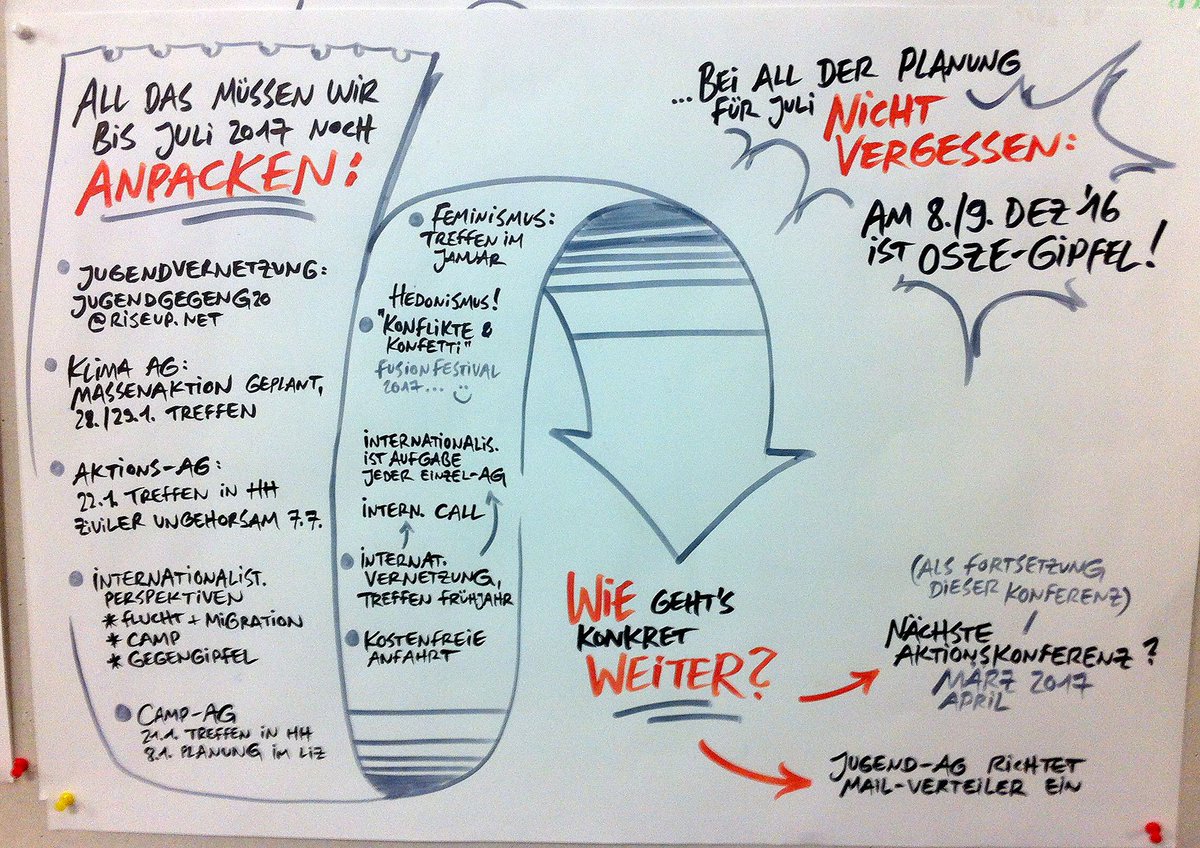 ALL DAS MÜSSEN WIR
BIS JULI 2017 NOCH
ANPACKEN:
JUGENDVERNETZUNG:
JUGENDGEGENG20
@RISEUP.NET
KLIMA AG:
MASSENAKTION GEPLANT,
28./29.1. TREFFEN
AKTIONS-AG:
22.1. TREFFEN IN HH
ZIVILER UNGEHORSAM 7.7.
INTERNATIONALIST.
PERSPEKTIVEN
* FLUCHT + MIGRATION
* CAMP
* GEGENGIPFEL
CAMP-AG
21.1. TREFFEN IN HH
8.1. PLANUNG IM LIZ
FEMINISMUS:
TREFFEN IM
JANUAR
HEDONISMUS!
"KONFLIKTE &
KONFETTI"
FUSIONFESTIVAL
2017...
INTERNATIONALIS.
IST AUFGABE
JEDER EINZEL-AG
INTERN. CALL
INTERNAT.
VERNETZUNG,
TREFFEN FRÜHJAHR
KOSTENFREIE
ANFAHRT
...BEI ALL DER PLANUNG
FÜR JULI NICHT
VERGESSEN:
AM 8./9. DEZ '16
IST OSZE-GIPFEL!
WIE GEHT'S
KONKRET
WEITER?
(ALS FORTSETZUNG
DIESER KONFERENZ)
NÄCHSTE
AKTIONSKONFERENZ?
MÄRZ 2017
APRIL
JUGEND-AG RICHTET
MAIL-VERTEILER EIN